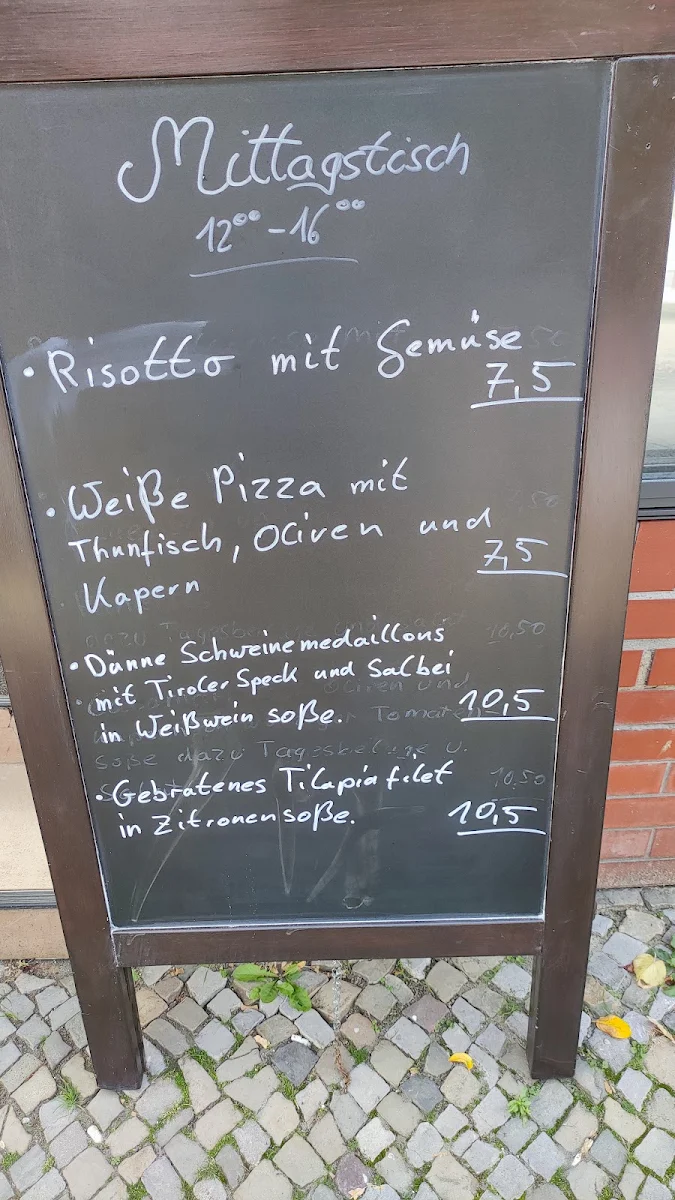 Mittagstisch
12⁰⁰-16⁰⁰
• Risotto mit Gemüse
7,5
• Weiße Pizza mit
Thunfisch, Oliven und
7,5
Kapern
• Dünne Schweinemedaillons
mit Tiroler Speck und Salbei
in Weißwein soße. 10,5
• Gebratenes Tilapiafilet
in Zitronensoße. 10,5